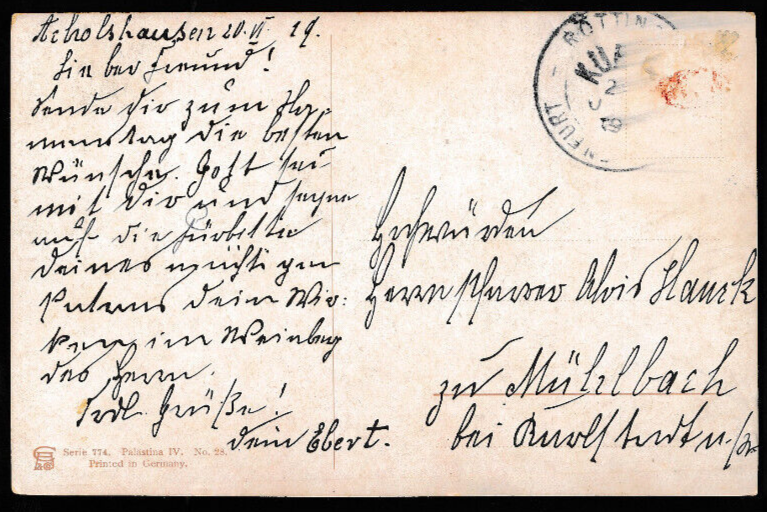 Acholshausen 20. VI. 19.
Lieber Freund!
Sende dir zum Na-
menstag die besten
Wünsche. Gott sei
mit dir und segne
auf die Fürbitte
deines mächtigen
Patrons dein Wir-
ken im Weinberg
des Herrn.
Frdl. Grüße!
dein Ebert.
Serie 774. Palästina IV. No. 28.
Printed in Germany.
RÖTTIN
Hochwürden
Herrn Pfarrer Alois Hauck
zu Mühlbach
bei Karlstadt a/M.